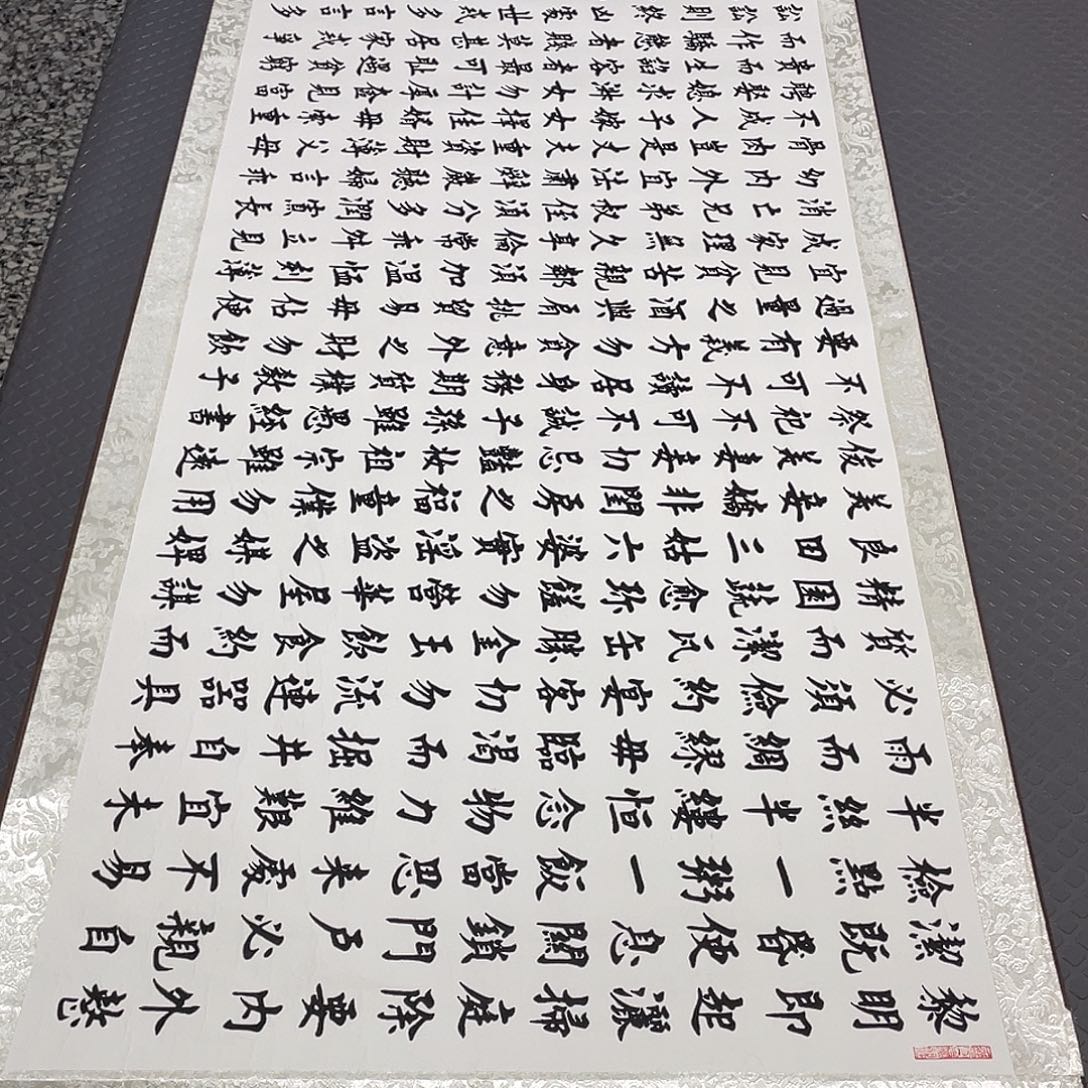 黎明即起灑掃庭除要內外整
潔既昏便息關鎖門戶必親自
檢點一粥一飯當思來處不易
半絲半縷恒念物力維艱宜未
雨而綢繆毋臨渴而掘井自奉
必須儉約宴客切勿流連器具
質而潔瓦缶勝金玉飲食約而
精園蔬愈珍饈勿營華屋勿謀
良田三姑六婆實淫盜之媒婢
美妾嬌非閨房之福童僕勿用
俊美妻妾切忌豔妝祖宗雖遠
祭祀不可不誠子孫雖愚經書
不可不讀居身務期質樸教子
要有義方勿貪意外之財勿飲
過量之酒與肩挑貿易毋佔便
宜見貧苦親鄰須加溫恤刻薄
成家理無久享倫常乖舛立見
消亡兄弟叔侄須分多潤寡長
幼內外宜法肅辭嚴聽婦言乖
骨肉豈是丈夫重資財薄父母
不成人子嫁女擇佳婿毋索重
聘娶媳求淑女勿計厚奩見富
貴而生諂容者最可恥遇貧窮
而作驕態者賤莫甚居家戒爭
訟訟則終凶處世戒多言言多